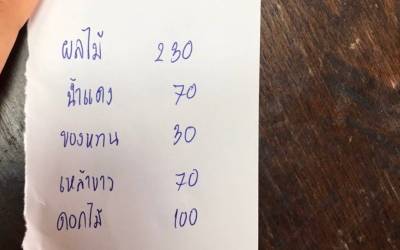 ผลไม้ 230
น้ำแดง 70
ของหทาน 30
เหล้าขาว 70
ดอกไม้ 100